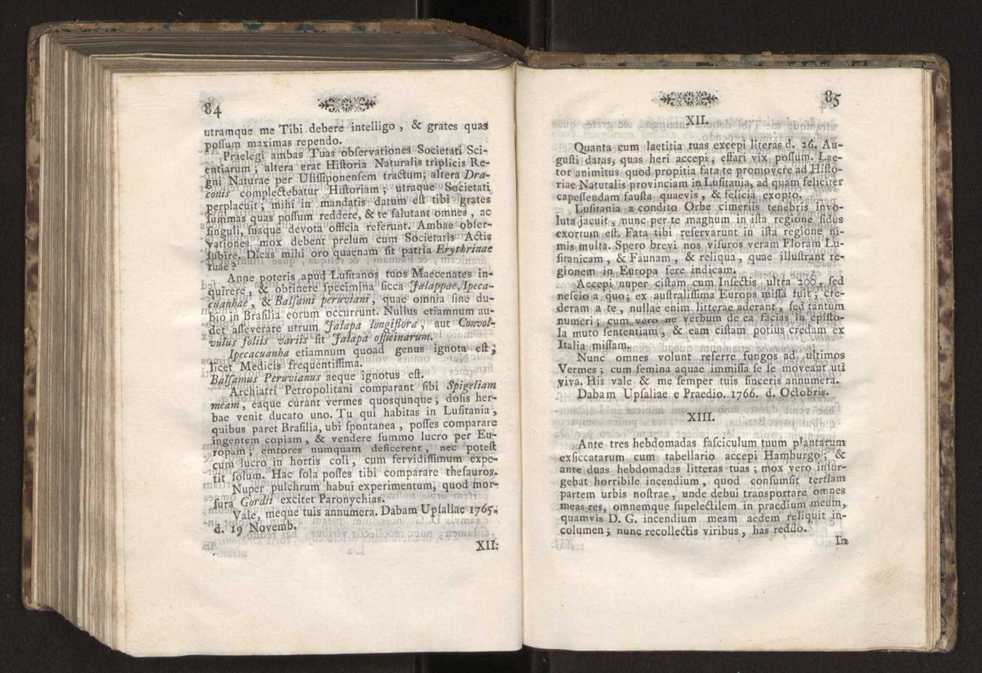 84
utramque me Tibi debere intelligo , & grates quas
possum maximas rependo.
Praelegi ambas Tuas observationes Societati Sci-
entiarum ; altera erat Historia Naturalis triplicis Re-
gni Naturae per Ulissiponensem tractum; altera Dra-
conis complectebatur Historiam ; utraque Societati
perplacuit ; mihi in mandatis datum est tibi grates
summas quas possum reddere, & te salutant omnes , ac
singuli, suaque devota officia referunt. Ambae obser-
vationes mox debent prelum cum Societatis Actis
subire. Dicas mihi oro quaenam sit patria Erythrinae
tuae ?
Anne poteris apud Lusitanos tuos Maecenates in-
quirere , & obtinere specimina sicca Jalappae, Ipeca-
cuanhae , & Balsami peruviani , quae omnia sine du-
bio in Brasilia eorum occurrunt. Nullus etiamnum au-
det asseverare utrum Jalapa longiflora , aut Convol-
vulus foliis variis sit Jalapa officinarum.
Ipecacuanha etiamnum quoad genus ignota est ;
licet Medicis frequentissima.
Balsamus Peruvianus aeque ignotus est.
Archiatri Petropolitani comparant sibi Spigeliam
meam , eaque curant vermes quosqunque ; dosis her-
bae venit ducato uno. Tu qui habitas in Lusitania ,
quibus paret Brasilia, ubi spontanea , posses comparare
ingentem copiam , & vendere summo lucro per Eu-
ropam ; emtores numquam deficerent , nec potest
cum lucro in hortis coli , cum fervidissimum expe-
tit solum. Hac sola posses tibi comparare thesauros.
Nuper pulchrum habui experimentum, quod mor-
sura Gordii excitet Paronychias.
Vale, meque tuis annumera. Dabam Upsaliae 1765.
d. 19 Novemb.
XII.
85
XII.
Quanta cum laetitia tuas excepi literas d. 26. Au-
gusti datas, quas heri accepi, effari vix possum. Lae-
tor animitus quod propitia fata te promovere ad Histo-
riae Naturalis provinciam in Lusitania, ad quam feliciter
capessendam fausta quaevis , & felicia exopto.
Lusitania a condito Orbe cimeriis tenebris invo-
luta jacuit , nunc per te magnum in ista regione sidus
exortum est. Fata tibi reservarunt in ista regione ni-
mis multa. Spero brevi nos visuros veram Floram Lu-
sitanicam , & Faunam , & reliqua , quae illustrant re-
gionem in Europa fere indicam.
Accepi nuper cistam cum Insectis ultra 200, sed
nescio a quo; ex australissima Europa missa fuit; cre-
deram a te , nullae enim litterae aderant , sed tantum
numeri ; cum vero ne verbum de ea facias in episto-
la muto sententiam , & eam cistam potius credam ex
Italia missam.
Nunc omnes volunt referre fungos ad ultimos
Vermes ; cum semina aquae immissa se se moveant uti
viva. His vale & me semper tuis sinceris annumera.
Dabam Upsaliae e Praedio. 1766. d. Octobris.
XIII.
Ante tres hebdomadas fasciculum tuum plantarum
exsiccatarum cum tabellario accepi Hamburgo ; &
ante duas hebdomadas litteras tuas ; mox vero insur-
gebat horribile incendium , quod consumsit tertiam
partem urbis nostrae , unde debui transportare omnes
meas res, omnemque supelectilem in praedium meum,
quamvis D. G. incendium meam aedem reliquit in-
columen ; nunc recollectis viribus , has reddo.
In